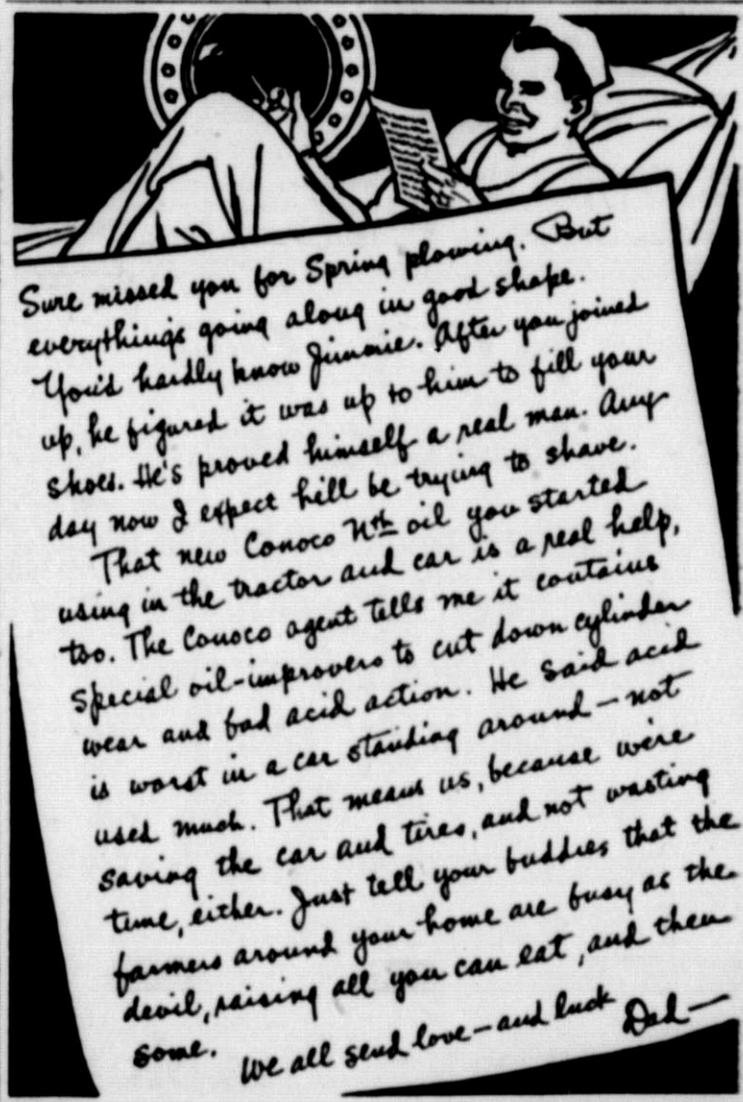 Sure missed you for Spring plowing. But
everything's going along in good shape.
You'd hardly know Jimmie. After you joined
up, he figured it was up to him to fill your
shoes. He's proved himself a real man. Any
day now I expect he'll be trying to shave.
That new Conoco Nth oil you started
using in the tractor and car is a real help,
too. The Conoco agent tells me it contains
special oil-improvers to cut down cylinder
wear and bad acid action. He said acid
is worst in a car standing around — not
used much. That means us, because we're
saving the car and tires, and not wasting
time, either. Just tell your buddies that the
farmers around your home are busy as the
devil, raising all you can eat, and then
some.
We all send love — and luck
Dad —